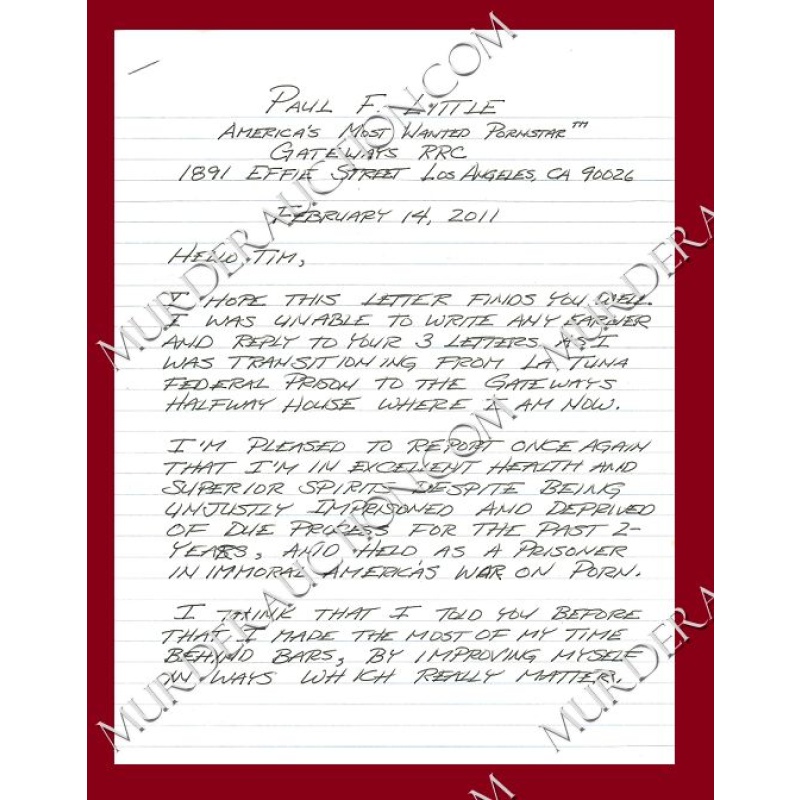 PAUL F. LITTLE
AMERICA'S MOST WANTED PORNSTAR™
GATEWAYS RRC
1891 EFFIE STREET LOS ANGELES, CA 90026
FEBRUARY 14, 2011
HELLO TIM,
I HOPE THIS LETTER FINDS YOU WELL.
I WAS UNABLE TO WRITE ANY EARLIER
AND REPLY TO YOUR 3 LETTERS AS I
WAS TRANSITIONING FROM LA TUNA
FEDERAL PRISON TO THE GATEWAYS
HALFWAY HOUSE WHERE I AM NOW.
I'M PLEASED TO REPORT ONCE AGAIN
THAT I'M IN EXCELLENT HEALTH AND
SUPERIOR SPIRITS DESPITE BEING
UNJUSTLY IMPRISONED AND DEPRIVED
OF DUE PROCESS FOR THE PAST 2-
YEARS, AND HELD AS A PRISONER
IN IMMORAL AMERICA'S WAR ON PORN.
I THINK THAT I TOLD YOU BEFORE
THAT I MADE THE MOST OF MY TIME
BEHIND BARS, BY IMPROVING MYSELF
IN WAYS WHICH REALLY MATTER.
MURDERAUCTION.COM
MURDERAUCTION.COM
MURDERA
MURDERA